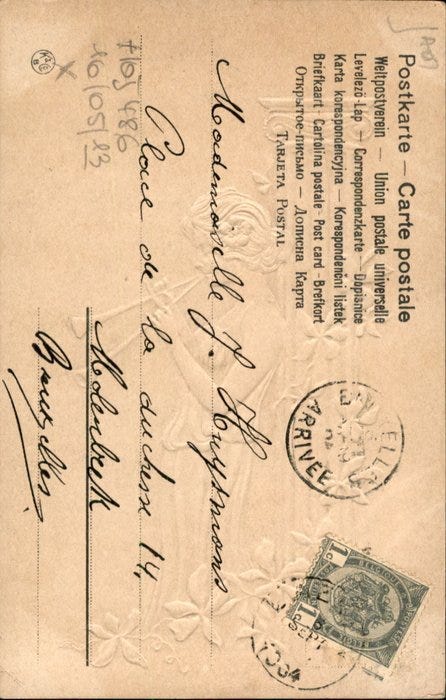 Postkarte — Carte postale
Weltpostverein — Union postale universelle
Levelező-Lap — Correspondenzkarte — Dopisnice
Karta korespondencyjna — Korespondenční listek
Briefkaart - Cartolina postale - Post card - Brefkort
Открытое-письмо — Дописна Карта
Tarjeta Postal
Mademoiselle J. Huysmans
Place de la duchesse 14,
Molenbeek
Bruxelles
ARRIVÉE
BELGIQUE
1c 1
SEPT
1904
10/05/83